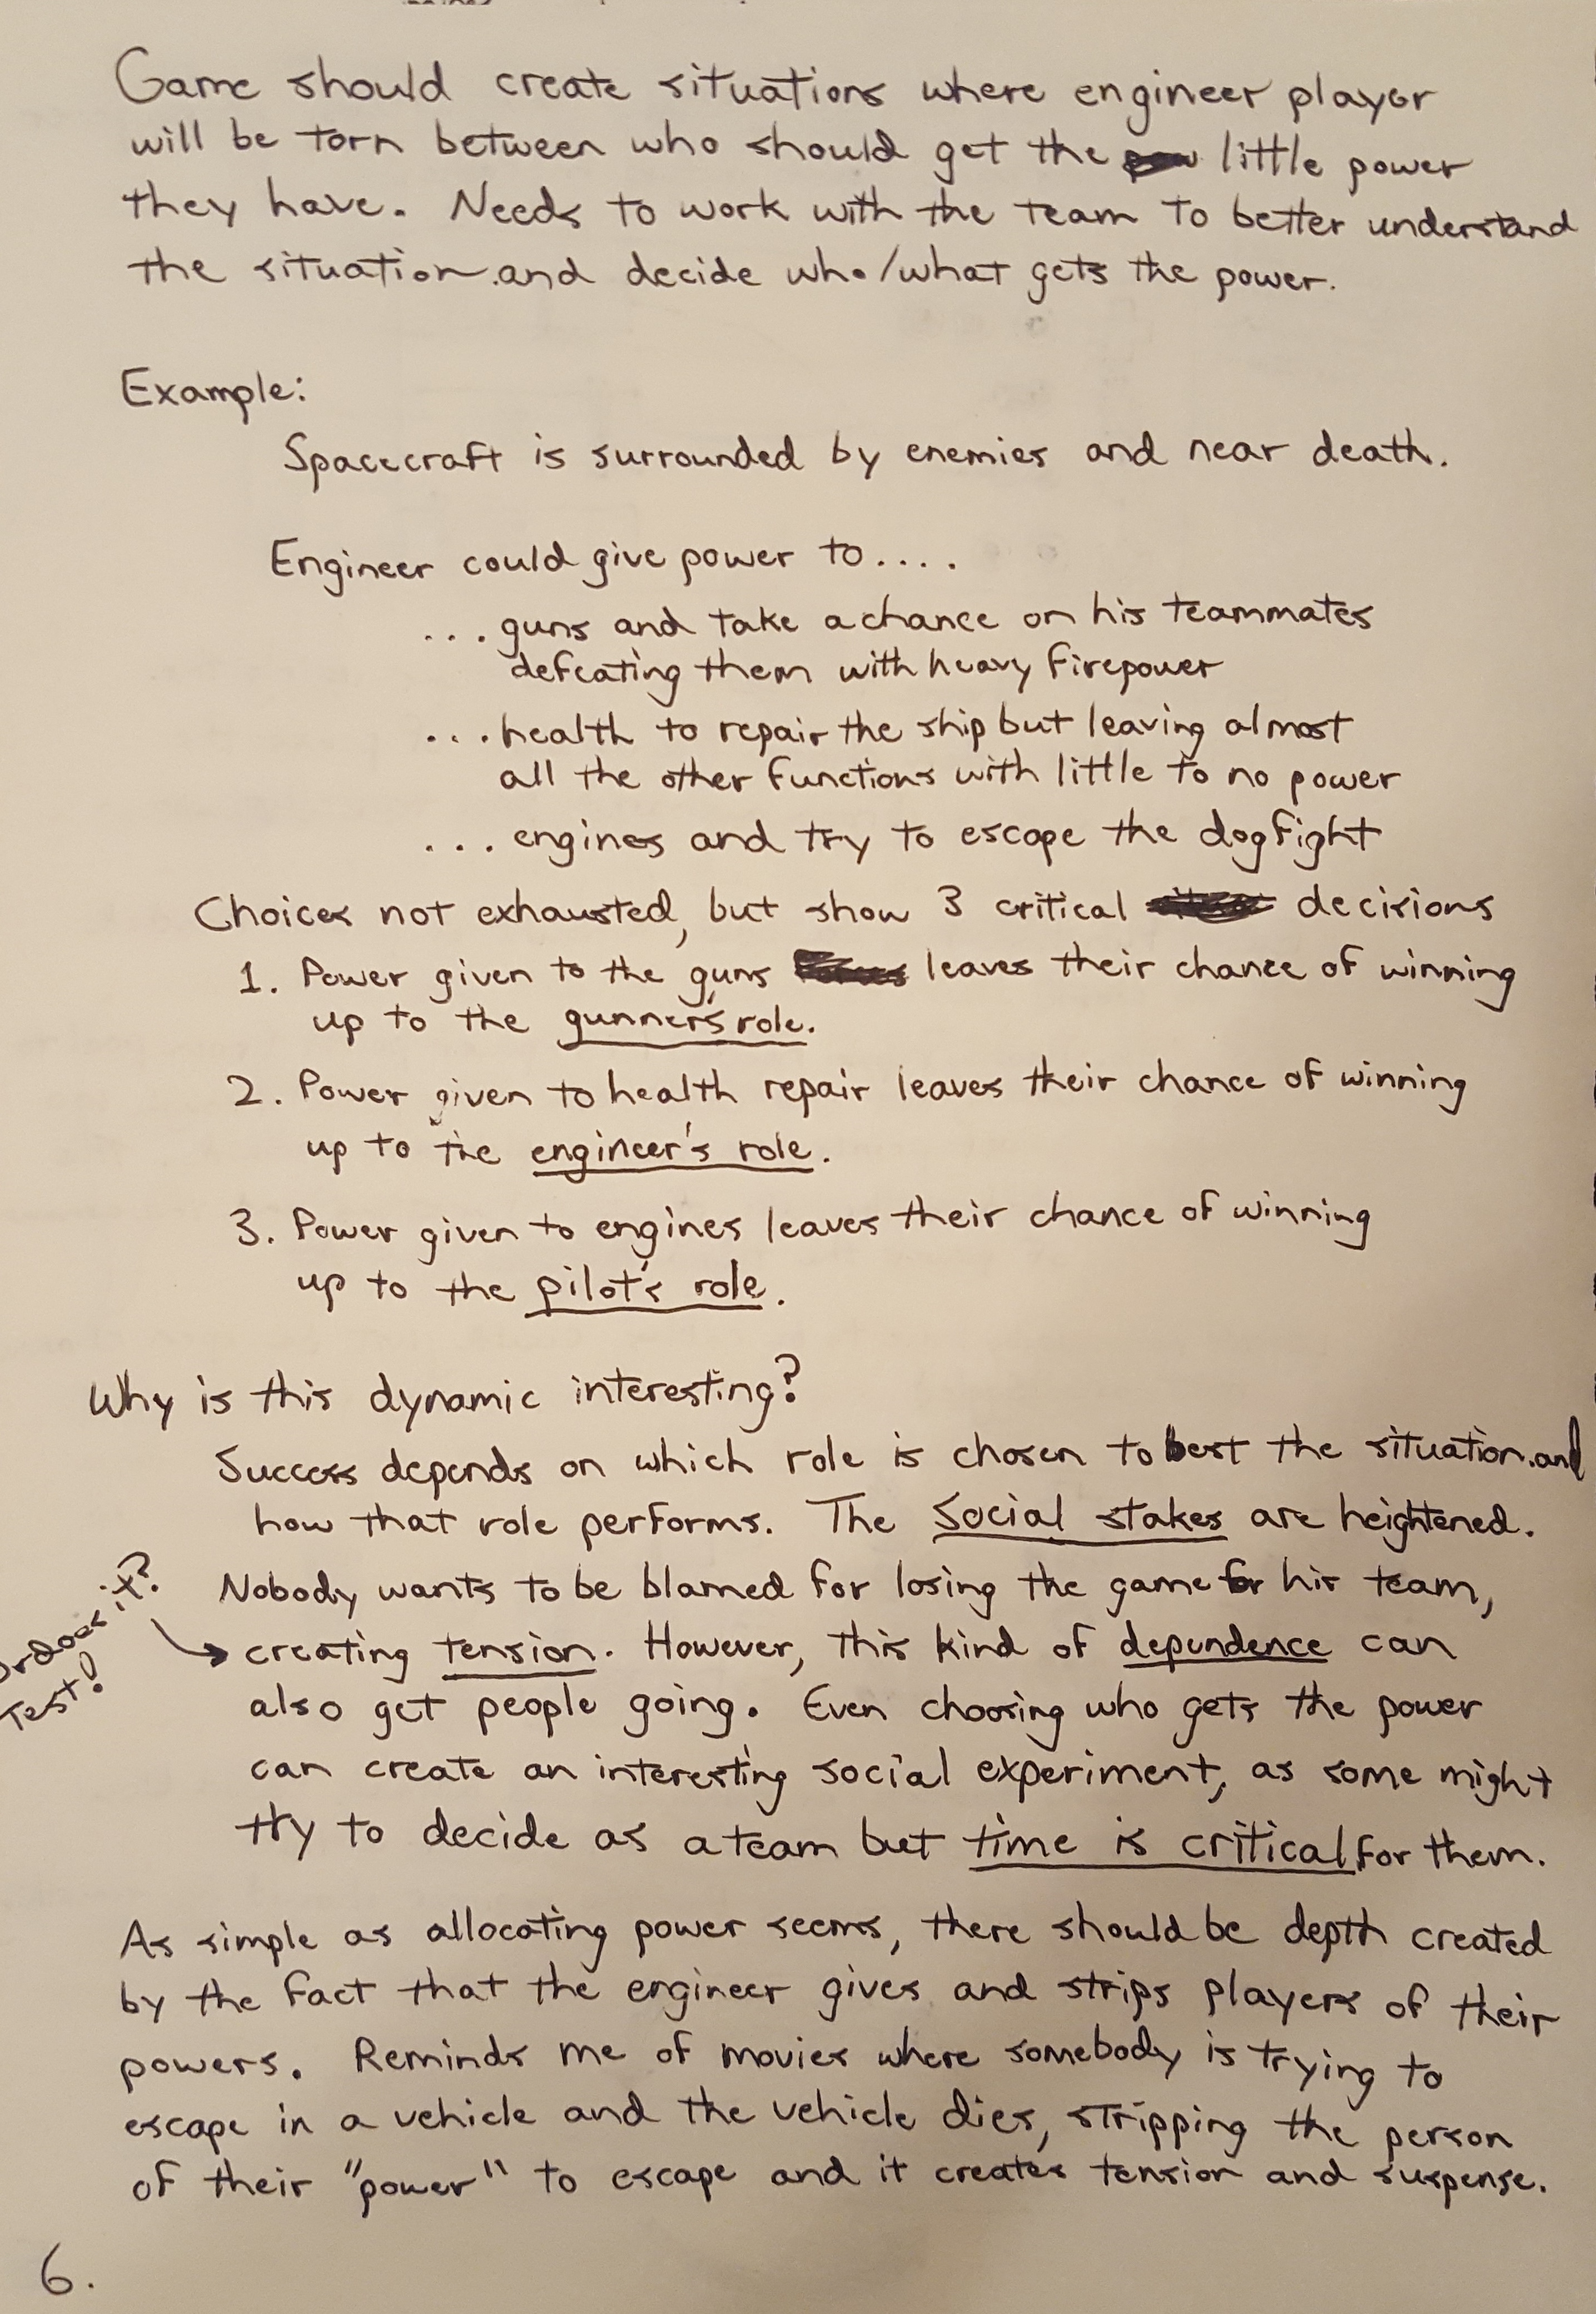 Game should create situations where engineer player
will be torn between who should get the little power
they have. Needs to work with the team to better understand
the situation and decide who/what gets the power.
Example:
Spacecraft is surrounded by enemies and near death.
Engineer could give power to....
...guns and take a chance on his teammates
defeating them with heavy firepower
...health to repair the ship but leaving almost
all the other functions with little to no power
...engines and try to escape the dogfight
Choices not exhausted, but show 3 critical decisions
1. Power given to the guns leaves their chance of winning
up to the gunner's role.
2. Power given to health repair leaves their chance of winning
up to the engineer's role.
3. Power given to engines leaves their chance of winning
up to the pilot's role.
Why is this dynamic interesting?
Success depends on which role is chosen to best the situation and
how that role performs. The social stakes are heightened.
Nobody wants to be blamed for losing the game for his team,
creating tension. However, this kind of dependence can
also get people going. Even choosing who gets the power
can create an interesting social experiment, as some might
try to decide as a team but time is critical for them.
Or does it?
Test!
As simple as allocating power seems, there should be depth created
by the fact that the engineer gives and strips players of their
powers. Reminds me of movies where somebody is trying to
escape in a vehicle and the vehicle dies, stripping the person
of their "power" to escape and it creates tension and suspense.
6.